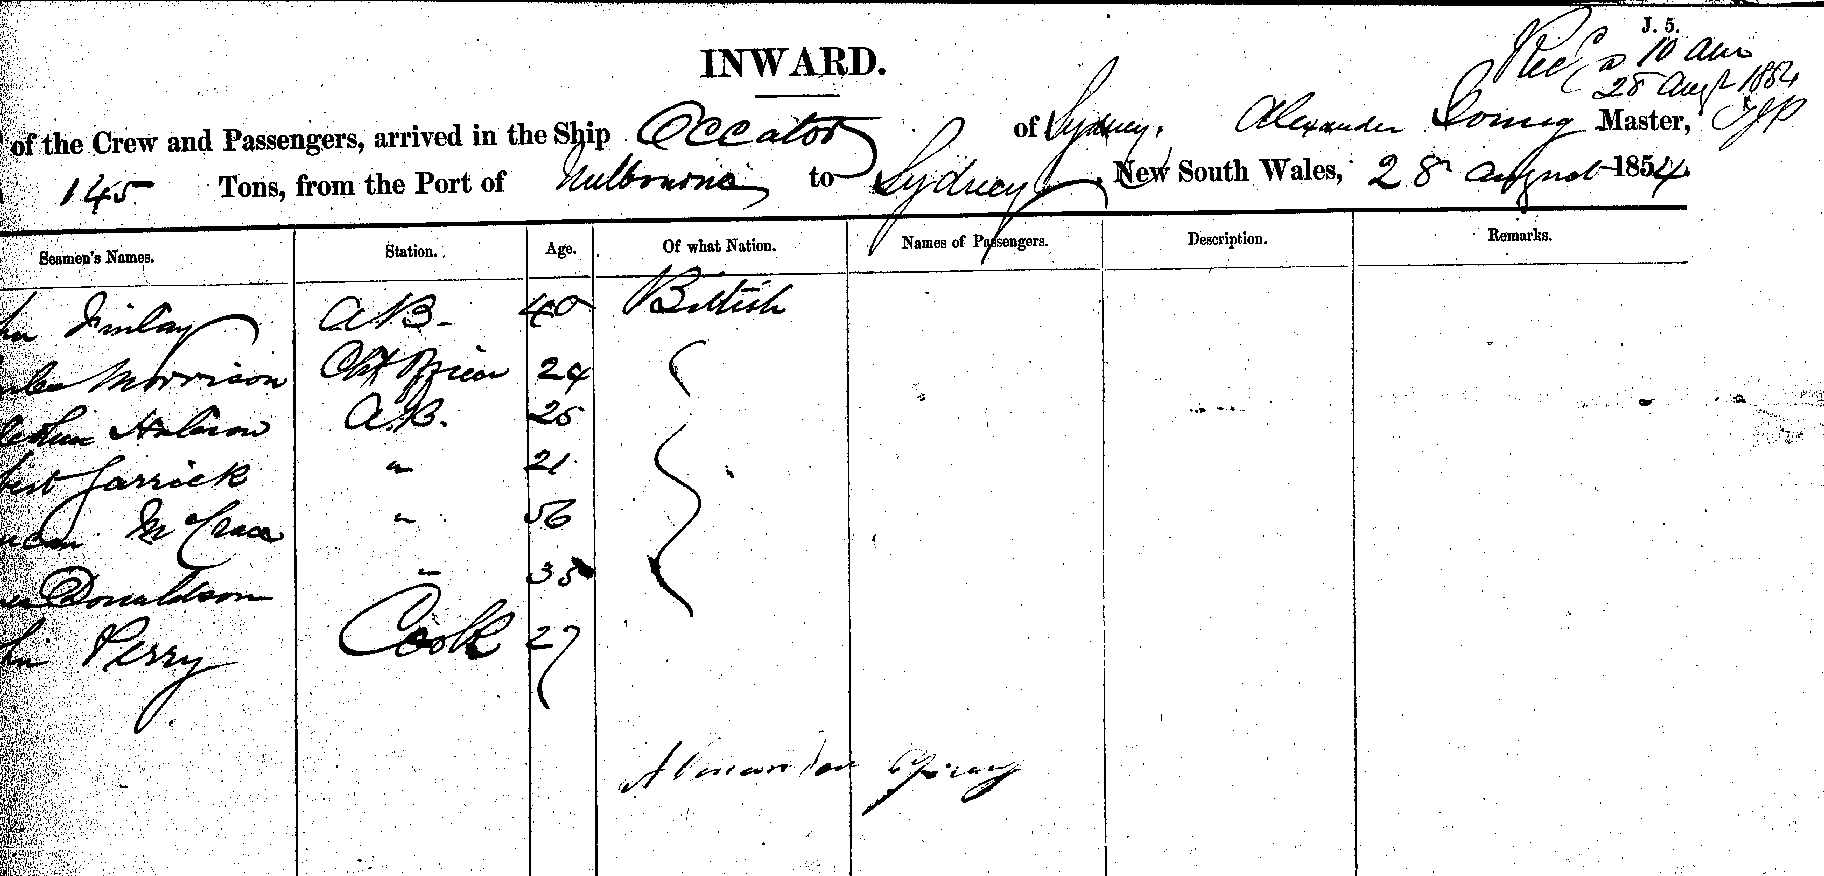 J. 5.
INWARD.
Recd @ 10 am
28 Augt 1854
of the Crew and Passengers, arrived in the Ship Occator of Sydney, Alexander Young Master,
145 Tons, from the Port of Melbourne to Sydney, New South Wales, 28 August 1854
Seamen's Names. Station. Age. Of what Nation. Names of Passengers. Description. Remarks.
hn Finlay AB- 40 British
Morrison Chf Officer 24
A.B. 25
Garrick " 21
McCrae " 56
Donaldson " 35
hn Perry Cook 27
Alexander Young